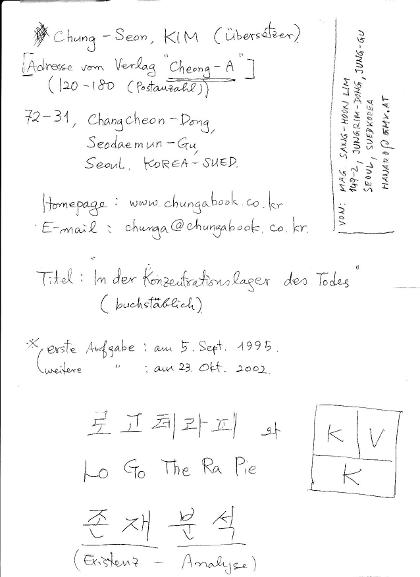 Chung-Seon, KIM (Übersetzer)
[Adresse vom Verlag "Cheong-A"]
(120-180 (Postanzahl))
72-31, Changcheon-Dong,
Seodaemun-Gu,
Seoul, KOREA-SUED.
Homepage : www.chungabook.co.kr
E-mail : chunga@chungabook.co.kr
Titel : "In der Konzentrationslager des Todes"
(buchstäblich)
※ erste Aufgabe : am 5. Sept. 1995.
(weitere " : am 23. Okt. 2002.
로고테라피 와
Lo Go The Ra Pie
존재 분석
(Existenz - Analyse)
VON: MAG SANG-HOON LIM
149-2, JUNGRIM-DONG, JUNG-GU
SEOUL, SUEDKOREA
K V
K